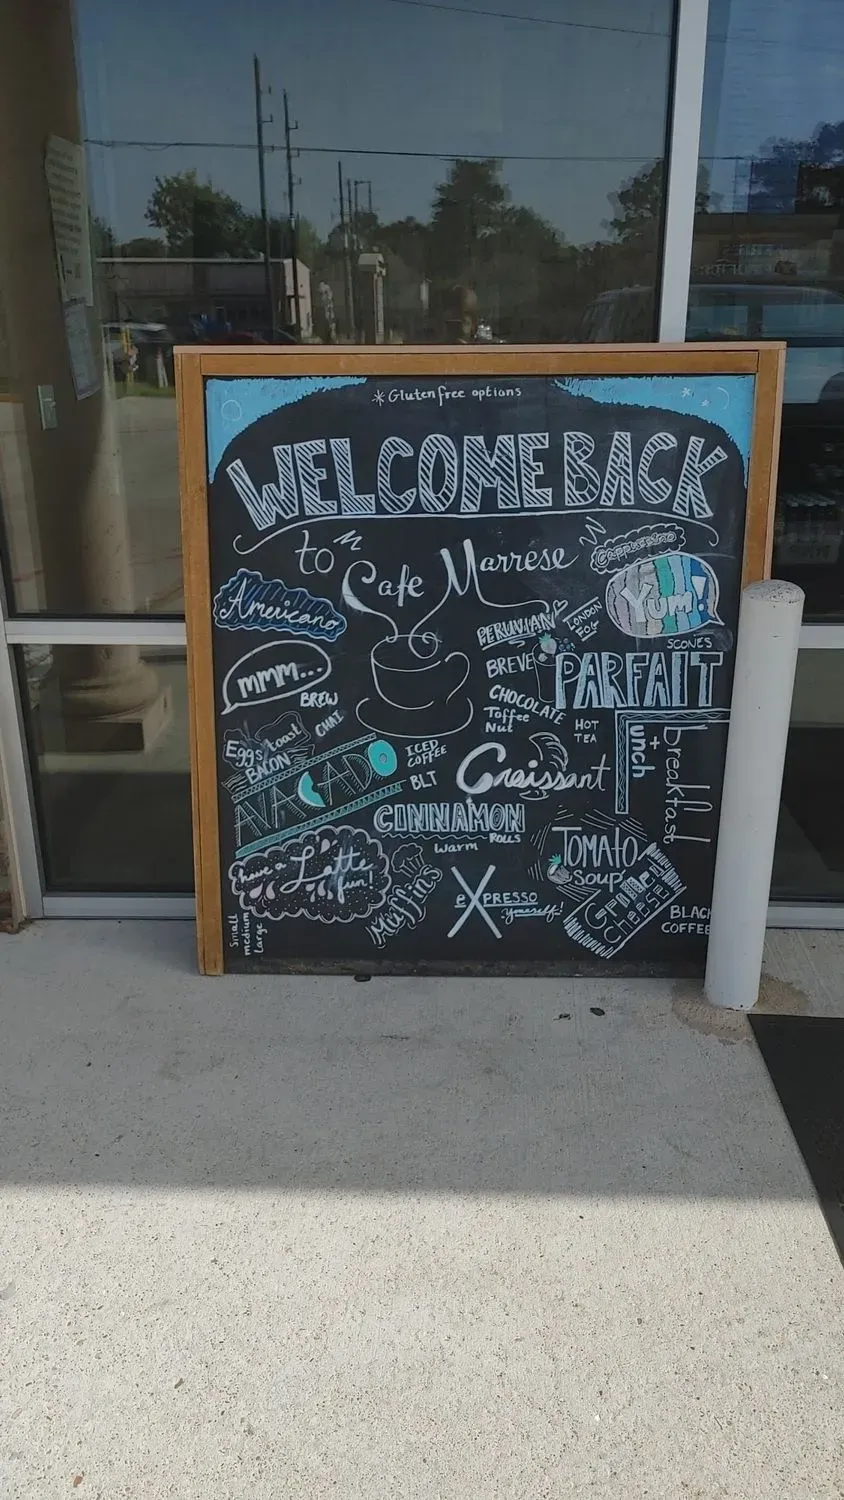 *Gluten free options
WELCOME BACK
to Cafe Marrese
Cappuccino
Americano
YUM!
PERUVIAN
LONDON FOG
SCONES
mmm...
BREVE
PARFAIT
BREW
CHAI
CHOCOLATE
Toffee
Nut
HOT
TEA
Eggs toast
BACON
AVACADO
ICED
COFFEE
BLT
Croissant
breakfast
+
Lunch
CINNAMON
ROLLS
Warm
TOMATO
SOUP
GRILLED
CHEESE
have a Latte
fun!
Muffins
eXPRESSO
yourself!
BLACK
COFFEE
Small
medium
Large